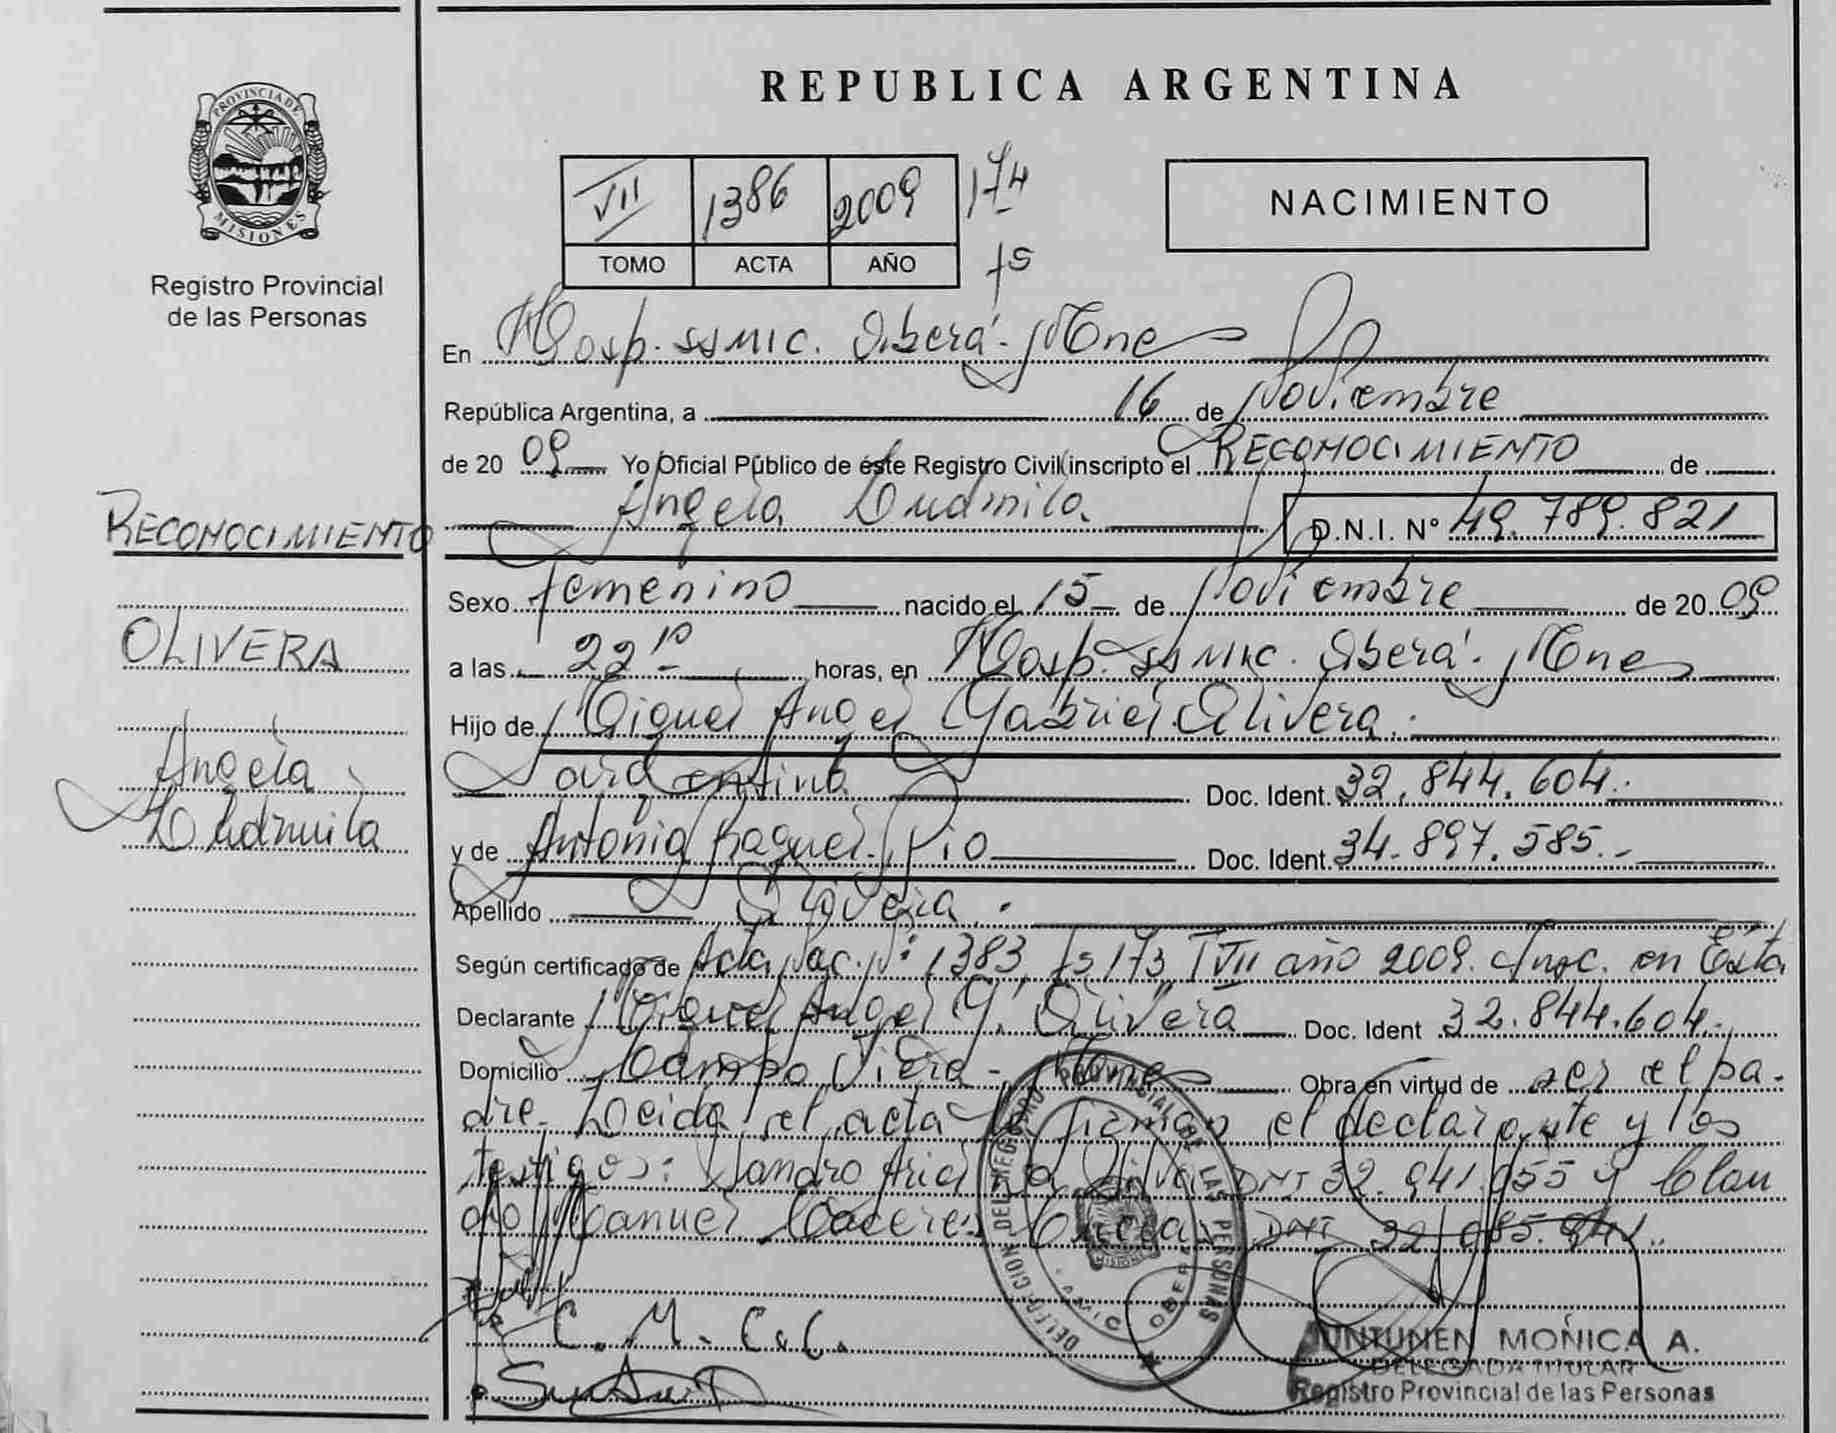 REPUBLICA ARGENTINA
PROVINCIA DE
MISIONES
Registro Provincial
de las Personas
VII 1386 2009 174
TOMO ACTA AÑO fs
NACIMIENTO
En Hosp. SSMIC. Oberá - Mnes
República Argentina, a 16 de Noviembre
de 20 09 Yo Oficial Público de éste Registro Civil inscripto el RECONOCIMIENTO de
Angela Ludmila D.N.I. Nº 49.789.821
RECONOCIMIENTO
OLIVERA
Angela
Ludmila
Sexo femenino nacido el 15 de Noviembre de 20 09
a las 22 10 horas, en Hosp. SSMIC. Oberá - Mnes
Hijo de Miguel Angel Gabriel Olivera.
argentino Doc. Ident. 32.844.604.
y de Antonia Raquel Pio Doc. Ident. 34.897.585.-
Apellido Olivera.
Según certificado de Acta Nac. Nº 1383, fs 173, T VII año 2009. Insc. en Ésta
Declarante Miguel Angel G. Olivera Doc. Ident 32.844.604.-
Domicilio Campo Viera - Mnes Obra en virtud de ser el pa-
dre. Leida el acta la firman el declarante y los
testigos: Sandro Ariel Da Silva DNI 32.941.055 y Clau
dio Manuel Caceres DNI 32
C. M. C. C.
DELEGACION DEL REGISTRO PROVINCIAL DE LAS PERSONAS
OBERA
MISIONES
UNTUNEN MONICA A.
DELEGADA TITULAR
Registro Provincial de las Personas